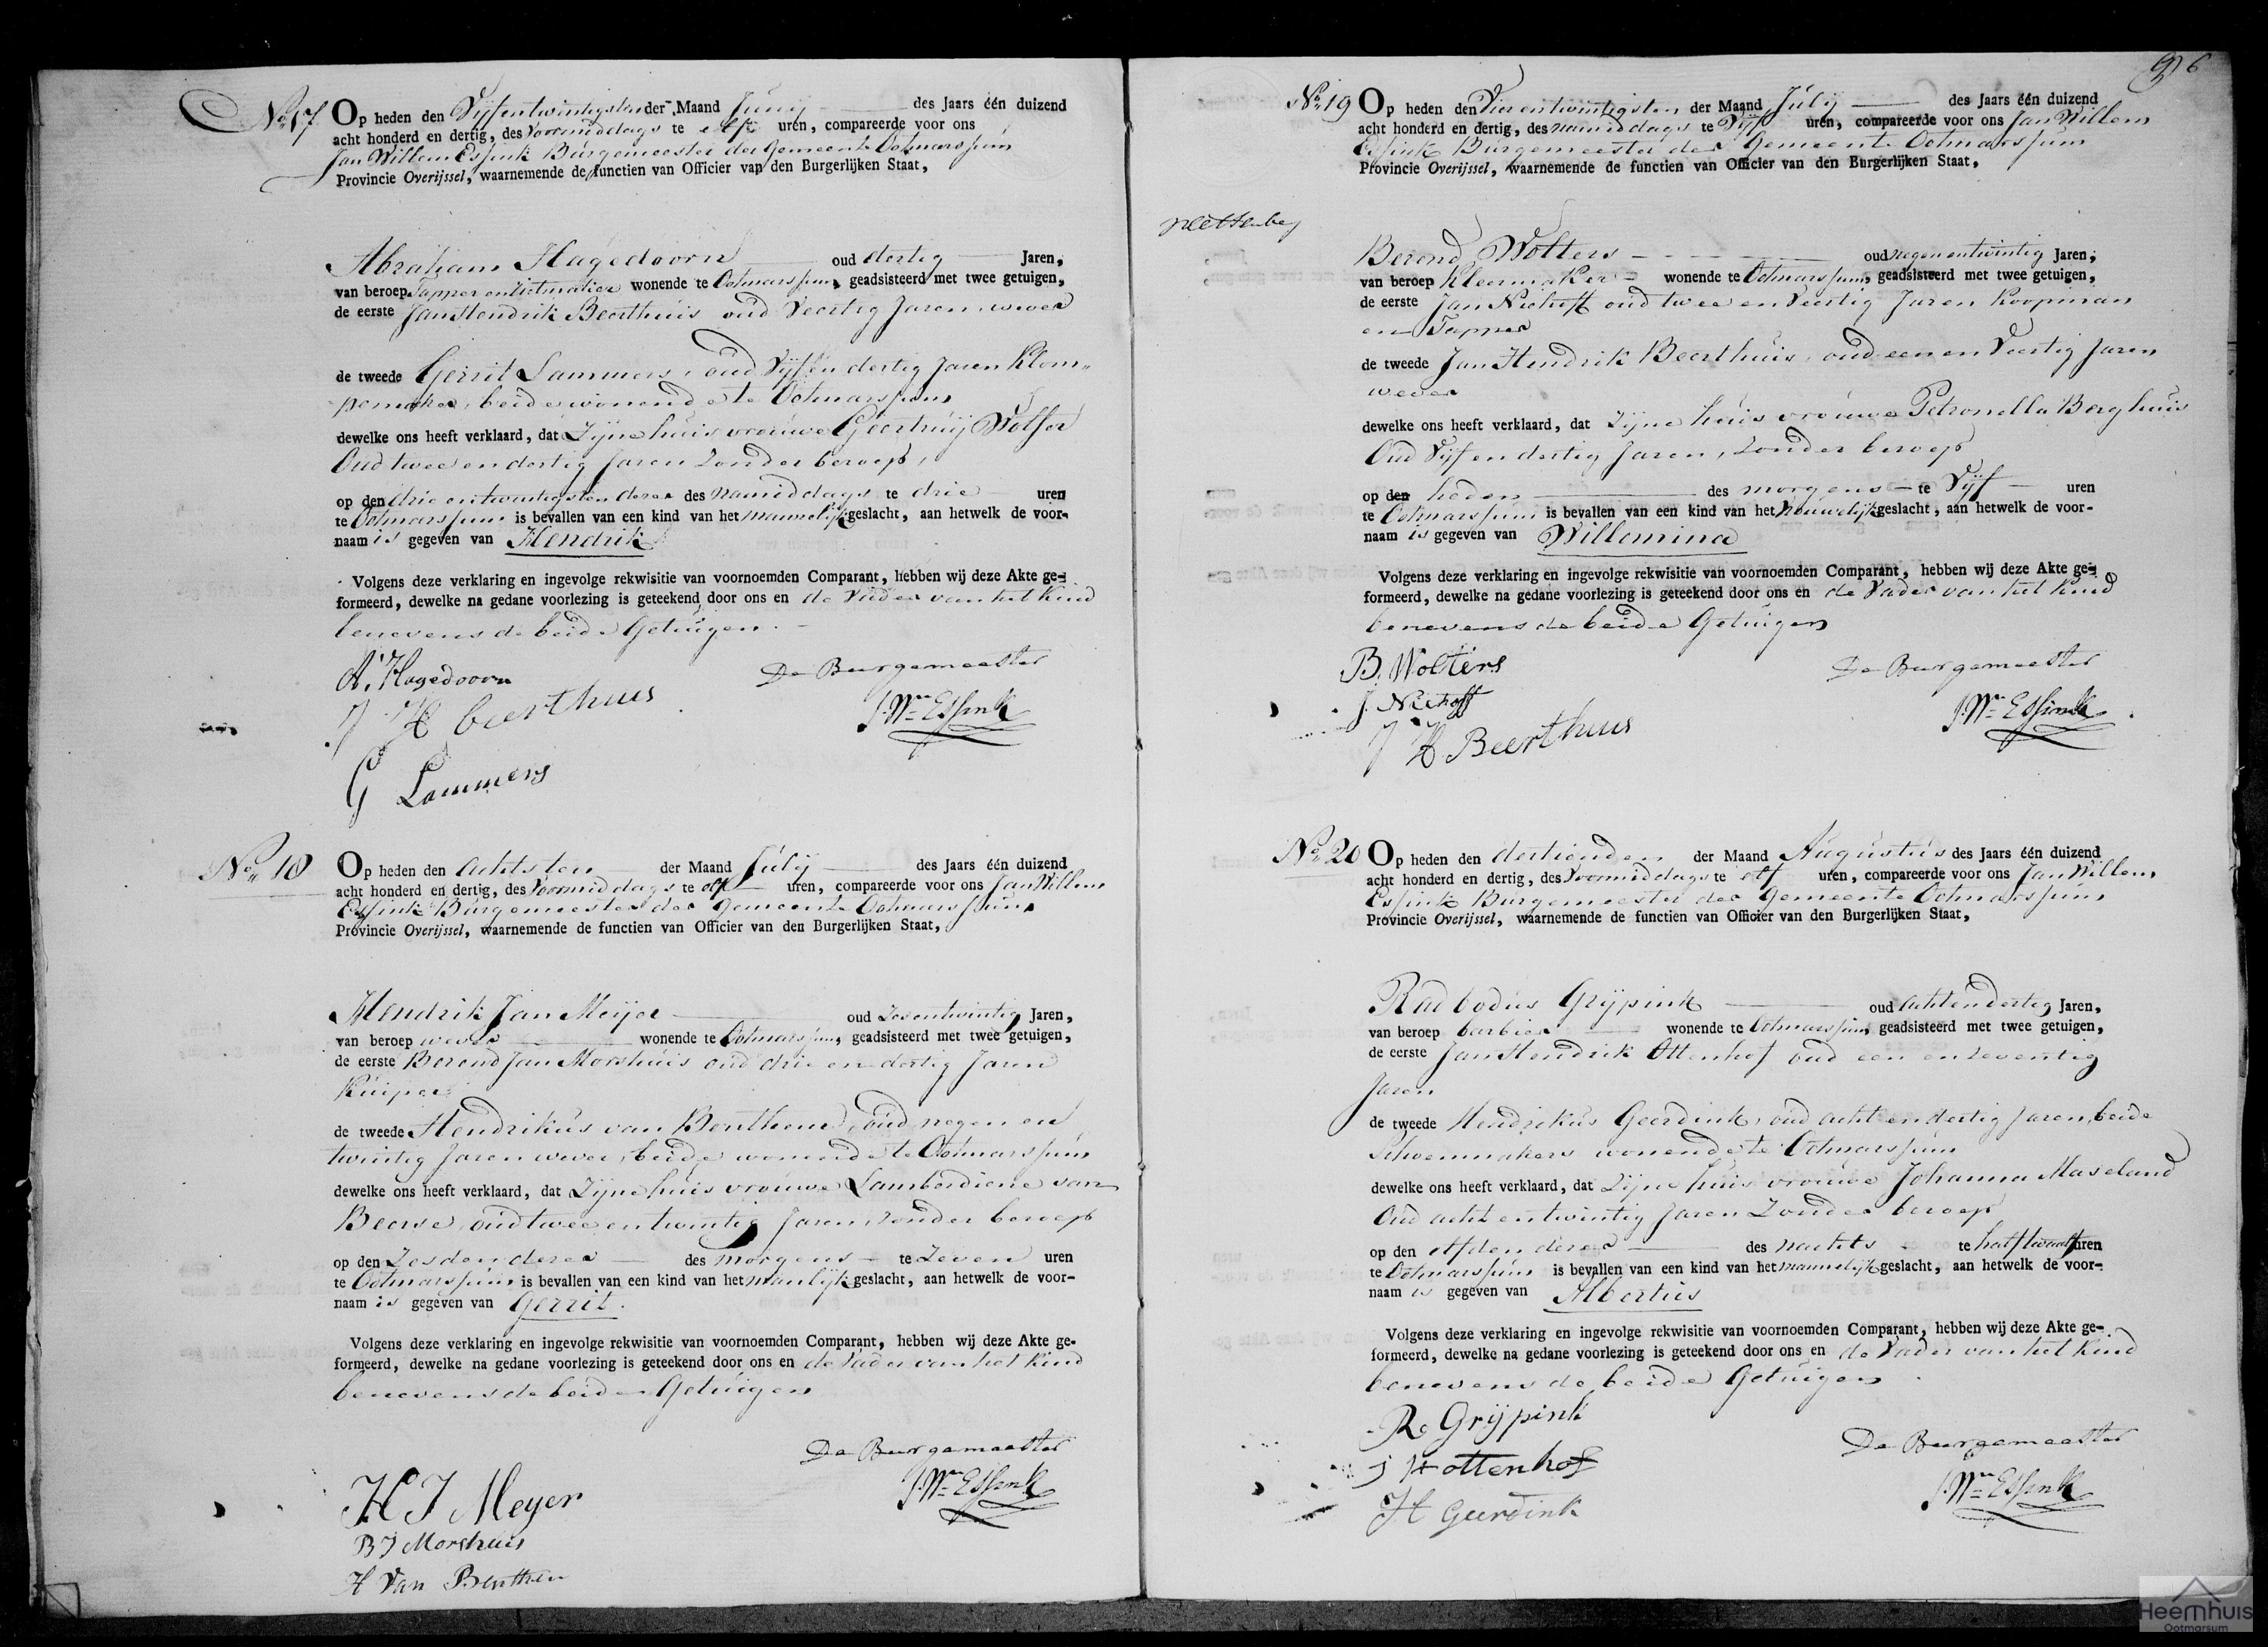 No. 17 Op heden den Vijfentwintigsten der Maand Junij des Jaars één duizend
acht honderd en dertig, des voormiddags te elf uren, compareerde voor ons
Jan Willem Essink Burgemeester der Gemeente Ootmarssum
Provincie Overijssel, waarnemende de functien van Officier van den Burgerlijken Staat,
Abraham Hagedoorn oud dertig Jaren,
van beroep Tapper en wonende te Ootmarssum, geadsisteerd met twee getuigen,
de eerste Jan Hendrik Beerthuis oud Veertig Jaren wever
de tweede Gerrit Lammers, oud Vijf en dertig Jaren Klom-
pemaker, beide wonende te Ootmarssum
dewelke ons heeft verklaard, dat Zijne huisvrouwe Geertruij Wolfer
Oud twee en dertig Jaren Zonder beroep,
op den drie entwintigsten dezer des namiddags te drie uren
te Ootmarssum is bevallen van een kind van het mannelijk geslacht, aan hetwelk de voor-
naam is gegeven van Hendrik
Volgens deze verklaring en ingevolge rekwisitie van voornoemden Comparant, hebben wij deze Akte ge-
formeerd, dewelke na gedane voorlezing is geteekend door ons en de Vader van het Kind
benevens de beide Getuigen.
A. Hagedoorn De Burgemeester
J H Beerthuis J. Wm Essink
G Lammers
No. 18 Op heden den Achtsten der Maand Julij des Jaars één duizend
acht honderd en dertig, des Voormiddags te elf uren, compareerde voor ons Jan Willem
Essink Burgemeester der Gemeente Ootmarssum
Provincie Overijssel, waarnemende de functien van Officier van den Burgerlijken Staat,
Hendrik Jan Meijer oud Zesentwintig Jaren,
van beroep wever wonende te Ootmarssum, geadsisteerd met twee getuigen,
de eerste Berend Jan Morshuis oud drie en dertig Jaren
Kuiper
de tweede Hendrikus van Benthem, oud negen en
twintig Jaren wever, beide wonende te Ootmarssum
dewelke ons heeft verklaard, dat Zijne huisvrouwe Lamberdiene van
Beerse, oud twee en twintig Jaren Zonder beroep
op den Zesden dezer des morgens te Zeven uren
te Ootmarssum is bevallen van een kind van het manlijk geslacht, aan hetwelk de voor-
naam is gegeven van Gerrit.
Volgens deze verklaring en ingevolge rekwisitie van voornoemden Comparant, hebben wij deze Akte ge-
formeerd, dewelke na gedane voorlezing is geteekend door ons en de Vader van het Kind
benevens de beide Getuigen
De Burgemeester
H J Meyer J. Wm Essink
B J Morshuis
H Van Benthem
No. 19 Op heden den Vierentwintigsten der Maand Julij des Jaars één duizend
acht honderd en dertig, des namiddags te Vijf uren, compareerde voor ons Jan Willem
Essink Burgemeester der Gemeente Ootmarssum
Provincie Overijssel, waarnemende de functien van Officier van den Burgerlijken Staat,
Berend Wolters oud negenentwintig Jaren,
van beroep Kleermaker wonende te Ootmarssum, geadsisteerd met twee getuigen,
de eerste Jan Niehoff oud twee en Veertig Jaren Koopman
en Tapper
de tweede Jan Hendrik Beerthuis, oud een en Veertig Jaren
wever
dewelke ons heeft verklaard, dat Zijne huisvrouwe Petronella Berghuis
Oud Vijf en dertig Jaren, Zonder beroep
op den heden des morgens te Vijf uren
te Ootmarssum is bevallen van een kind van het Vrouwelijk geslacht, aan hetwelk de voor-
naam is gegeven van Willemina
Volgens deze verklaring en ingevolge rekwisitie van voornoemden Comparant, hebben wij deze Akte ge-
formeerd, dewelke na gedane voorlezing is geteekend door ons en de Vader van het Kind
benevens de beide Getuigen
B. Wolters De Burgemeester
J. Niehoff J. Wm Essink
J H Beerthuis
No. 20 Op heden den dertienden der Maand Augustus des Jaars één duizend
acht honderd en dertig, des Voormiddags te elf uren, compareerde voor ons Jan Willem
Essink Burgemeester der Gemeente Ootmarssum
Provincie Overijssel, waarnemende de functien van Officier van den Burgerlijken Staat,
Radbodus Grijpink oud Achtendertig Jaren,
van beroep barbier wonende te Ootmarssum, geadsisteerd met twee getuigen,
de eerste Jan Hendrik Ottenhof oud een en zeventig
Jaren
de tweede Hendrikus Geerdink, oud acht en dertig Jaren, beide
Schoenmakers wonende te Ootmarssum
dewelke ons heeft verklaard, dat Zijne huisvrouwe Johanna Maseland
Oud acht entwintig Jaren Zonder beroep
op den elfden dezer des nachts te half twaalf uren
te Ootmarssum is bevallen van een kind van het mannelijk geslacht, aan hetwelk de voor-
naam is gegeven van Albertus
Volgens deze verklaring en ingevolge rekwisitie van voornoemden Comparant, hebben wij deze Akte ge-
formeerd, dewelke na gedane voorlezing is geteekend door ons en de Vader van het Kind
benevens de beide Getuigen
R. Grijpink De Burgemeester
J H ottenhof J. Wm Essink
H Geerdink
Heemhuis
Ootmarsum